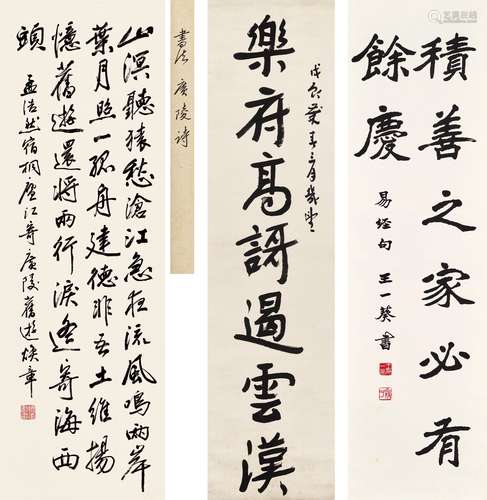 山溟聽猿愁滄江急夜流風鳴兩岸
葉月照一孤舟建德非吾土維揚
憶舊遊還將兩行淚遙寄海西
頭
孟浩然宿桐廬江寄廣陵舊遊 煥章
書法 廣陵诗
樂府高謌遏雲漢
春三月
積善之家必有
餘慶
易經句 王一葵書